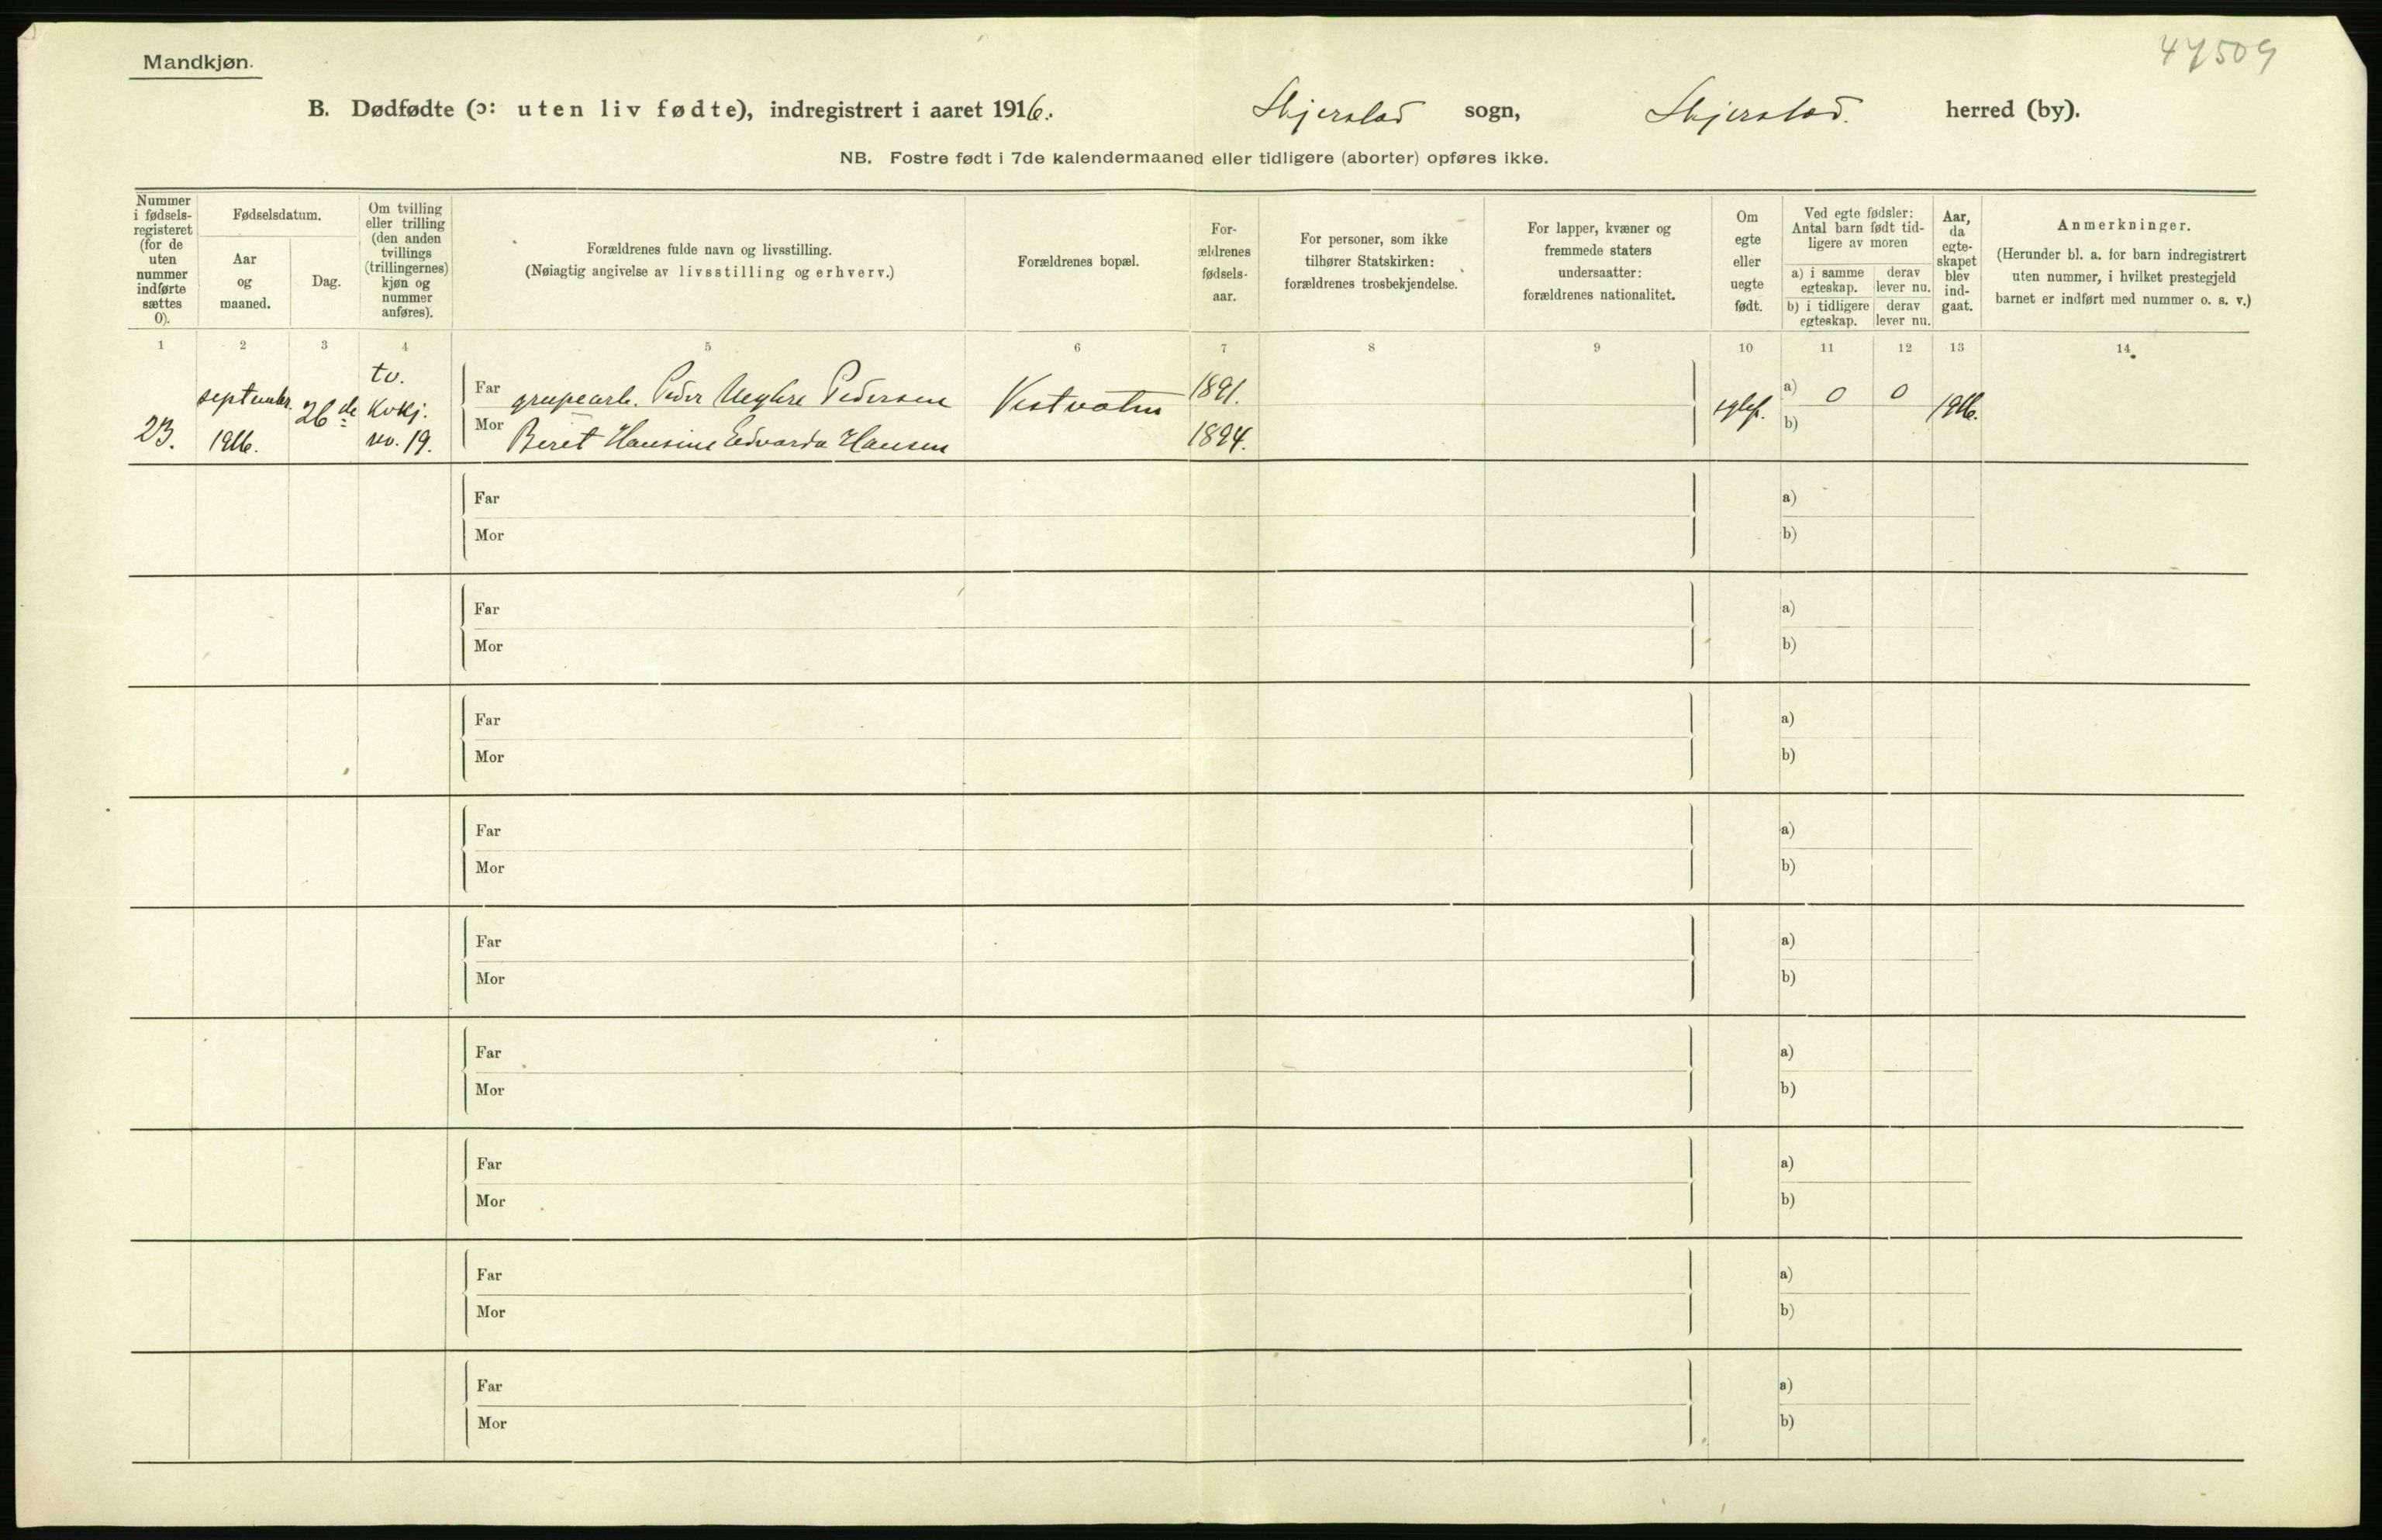 Mandkjøn.
47509
B. Dødfødte (ɔ: uten liv fødte), indregistrert i aaret 1916. Skjerstad sogn, Skjerstad. herred (by).
NB. Fostre født i 7de kalendermaaned eller tidligere (aborter) opføres ikke.
Nummer
i fødsels-
registeret
(for de
uten
nummer
indførte
sættes
0).
Fødselsdatum.
Aar
og
maaned.
Dag.
Om tvilling
eller trilling
(den anden
tvillings
(trillingernes)
kjøn og
nummer
anføres).
Forældrenes fulde navn og livsstilling.
(Nøiagtig angivelse av livsstilling og erhverv.)
Forældrenes bopæl.
For-
ældrenes
fødsels-
aar.
For personer, som ikke
tilhører Statskirken:
forældrenes trosbekjendelse.
For lapper, kvæner og
fremmede staters
undersaatter:
forældrenes nationalitet.
Om
egte
eller
uegte
født.
Ved egte fødsler:
Antal barn født tid-
ligere av moren
a) i samme
egteskap.
derav
lever nu.
b) i tidligere
egteskap.
derav
lever nu.
Aar,
da
egte-
skapet
blev
ind-
gaat.
Anmerkninger.
(Herunder bl. a. for barn indregistrert
uten nummer, i hvilket prestegjeld
barnet er indført med nummer o. s. v.)
1 2 3 4 5 6 7 8 9 10 11 12 13 14
23.
september.
1916.
26de
tv.
kvkj.
no. 19.
Far grupearb. Peder Pedersen
Mor Beret Hansine Edvarda Hansen
1891.
1894.
a) 0 0
b)
1916.
Far a)
Mor b)
Far a)
Mor b)
Far a)
Mor b)
Far a)
Mor b)
Far a)
Mor b)
Far a)
Mor b)
Far a)
Mor b)
Far a)
Mor b)
Far a)
Mor b)